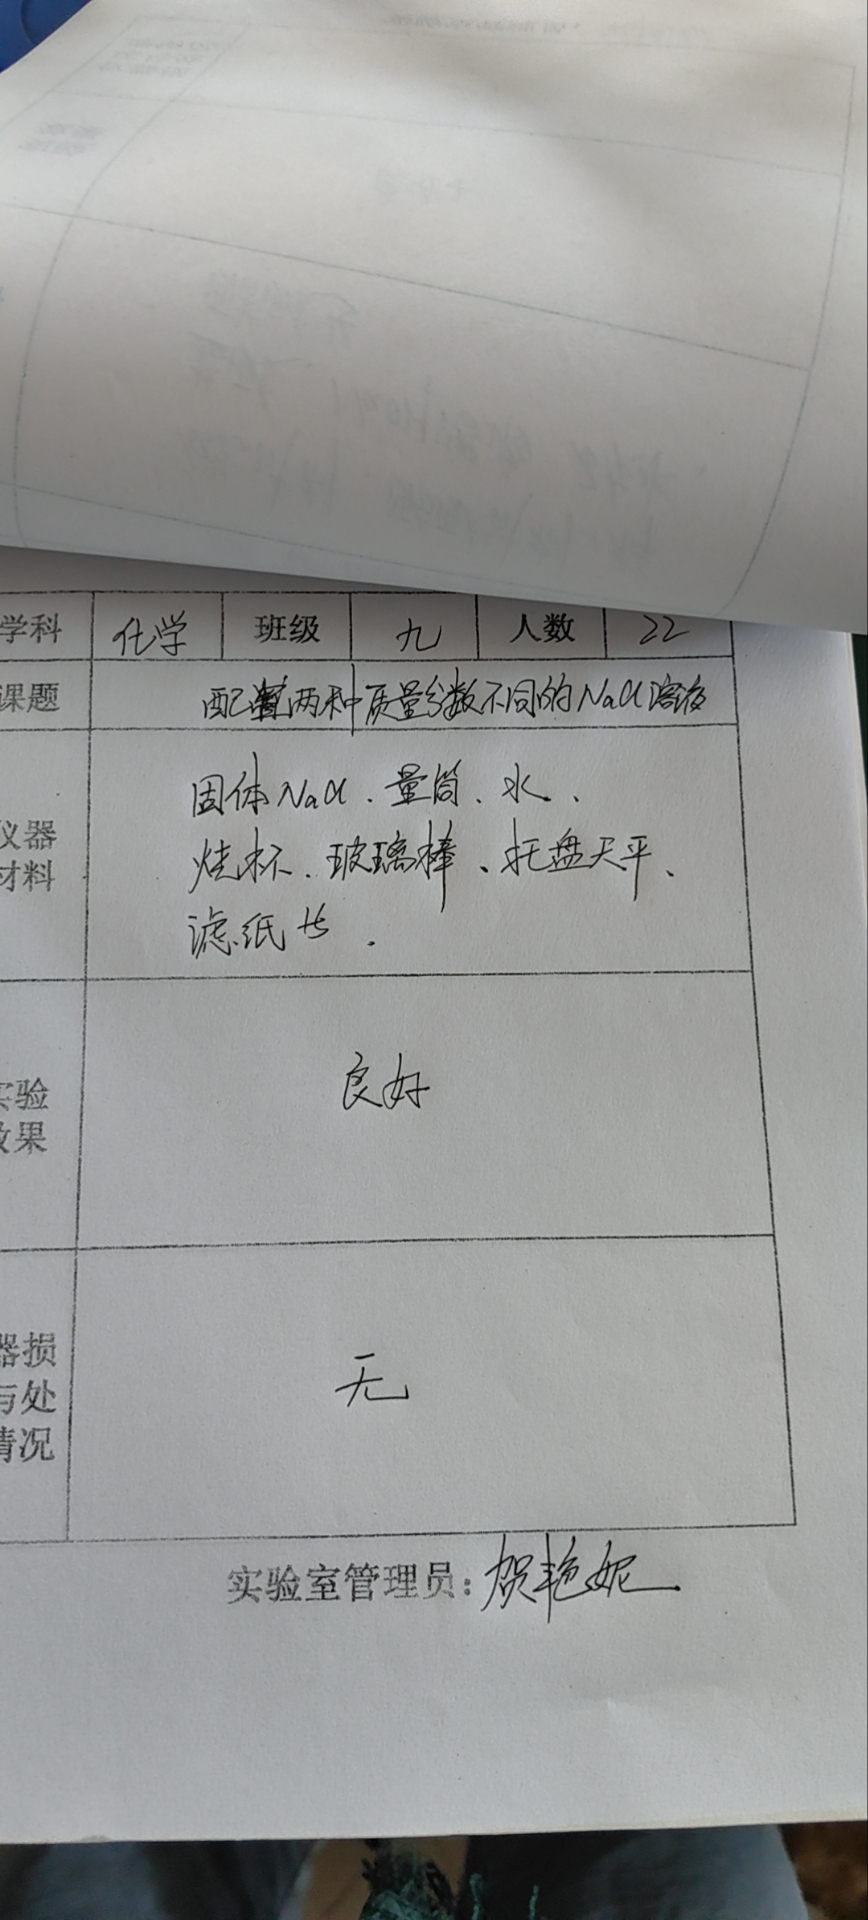 学科 化学 班级 九 人数 22
课题 配置两种质量分数不同的NaCl溶液
固体NaCl、量筒、水、
仪器 烧杯、玻璃棒、托盘天平、
材料
滤纸 等.
实验 良好
效果
器损
与处 无
情况
实验室管理员：贺艳妮